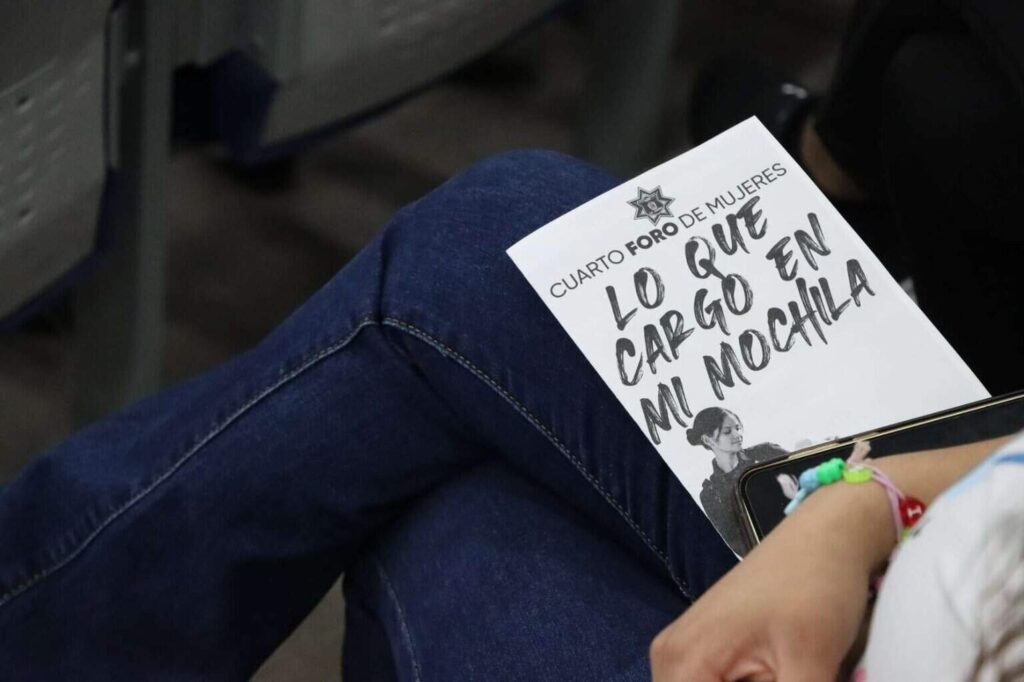 CUARTO FORO DE MUJERES
LO QUE
CARGO EN
MI MOCHILA
I